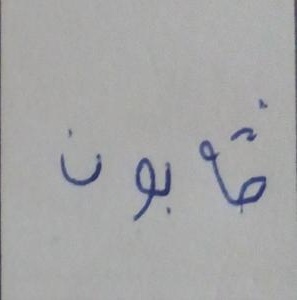 ڨابون